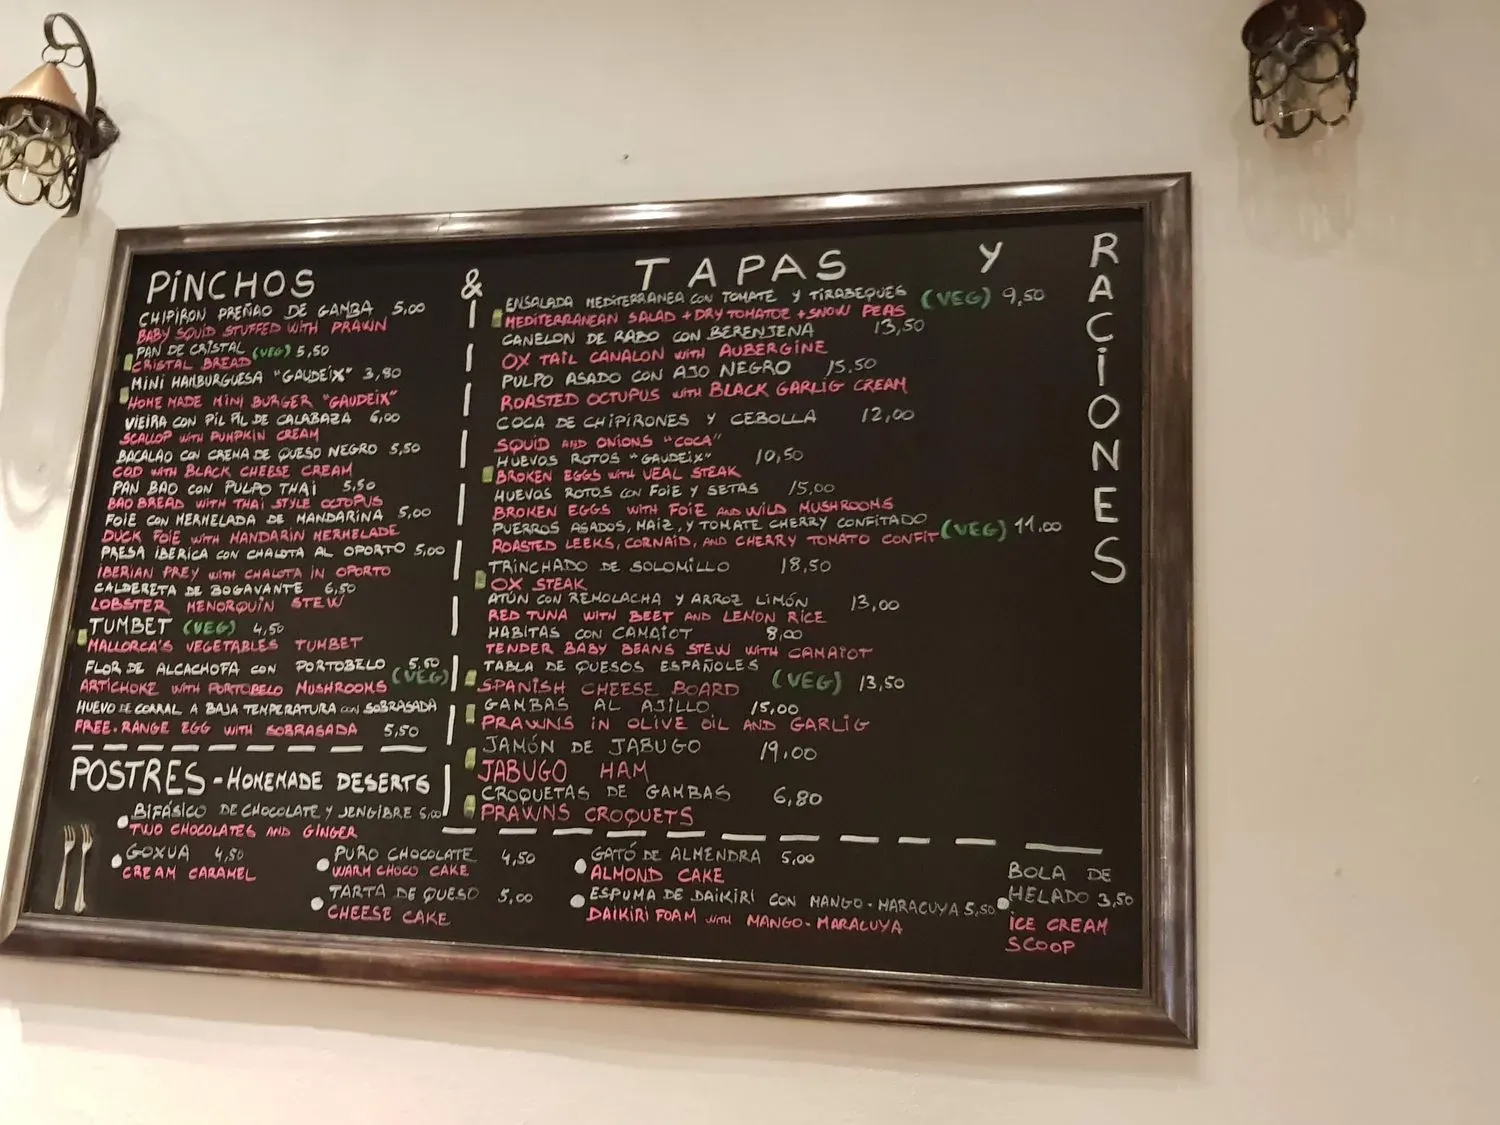 PINCHOS
CHIPIRON PREÑAO DE GAMBA 5,00
BABY SQUID STUFFED WITH PRAWN
PAN DE CRISTAL (VEG) 5,50
CRISTAL BREAD
MINI HAMBURGUESA "GAUDEIX" 3,80
HOME MADE MINI BURGER "GAUDEIX"
VIEIRA CON PIL PIL DE CALABAZA 6,00
SCALLOP WITH PUMPKIN CREAM
BACALAO CON CREMA DE QUESO NEGRO 5,50
COD WITH BLACK CHEESE CREAM
PAN BAO CON PULPO THAI 5,50
BAO BREAD WITH THAI STYLE OCTOPUS
FOIE CON MERMELADA DE MANDARINA 5,00
DUCK FOIE WITH MANDARIN MERMELADE
PRESA IBERICA CON CHALOTA AL OPORTO 5,00
IBERIAN PREY WITH CHALOTA IN OPORTO
CALDERETA DE BOGAVANTE 6,50
LOBSTER MENORQUIN STEW
TUMBET (VEG) 4,50
MALLORCA'S VEGETABLES TUMBET
FLOR DE ALCACHOFA CON PORTOBELO 5,50
ARTICHOKE WITH PORTOBELO MUSHROOMS (VEG)
HUEVO DE CORRAL A BAJA TEMPERATURA CON SOBRASADA
FREE-RANGE EGG WITH SOBRASADA 5,50
& TAPAS Y RACIONES
ENSALADA MEDITERRANEA CON TOMATE Y TIRABEQUES (VEG) 9,50
MEDITERRANEAN SALAD + DRY TOMATOE + SNOW PEAS
CANELON DE RABO CON BERENJENA 13,50
OX TAIL CANALON WITH AUBERGINE
PULPO ASADO CON AJO NEGRO 15.50
ROASTED OCTUPUS WITH BLACK GARLIG CREAM
COCA DE CHIPIRONES Y CEBOLLA 12,00
SQUID AND ONIONS "COCA"
HUEVOS ROTOS "GAUDEIX" 10,50
BROKEN EGGS WITH VEAL STEAK
HUEVOS ROTOS CON FOIE Y SETAS 15,00
BROKEN EGGS WITH FOIE AND WILD MUSHROOMS
PUERROS ASADOS, MAIZ, Y TOMATE CHERRY CONFITADO
ROASTED LEEKS, CORNAID, AND CHERRY TOMATO CONFIT (VEG) 11.00
TRINCHADO DE SOLOMILLO 18,50
OX STEAK
ATÚN CON REMOLACHA Y ARROZ LIMÓN 13,00
RED TUNA WITH BEET AND LEMON RICE
HABITAS CON CAMAIOT 8,00
TENDER BABY BEANS STEW WITH CAMAIOT
TABLA DE QUESOS ESPAÑOLES
SPANISH CHEESE BOARD (VEG) 13,50
GAMBAS AL AJILLO 15,00
PRAWNS IN OLIVE OIL AND GARLIG
JAMÓN DE JABUGO 19,00
JABUGO HAM
CROQUETAS DE GAMBAS 6,80
PRAWNS CROQUETS
POSTRES - HOMEMADE DESERTS
BIFÁSICO DE CHOCOLATE Y JENGIBRE 5,00
TWO CHOCOLATES AND GINGER
GOXUA 4,50
CREAM CARAMEL
PURO CHOCOLATE 4,50
WARM CHOCO CAKE
TARTA DE QUESO 5,00
CHEESE CAKE
GATÓ DE ALMENDRA 5,00
ALMOND CAKE
ESPUMA DE DAIKIRI CON MANGO-MARACUYA 5,50
DAIKIRI FOAM WITH MANGO-MARACUYA
BOLA DE
HELADO 3,50
ICE CREAM
SCOOP